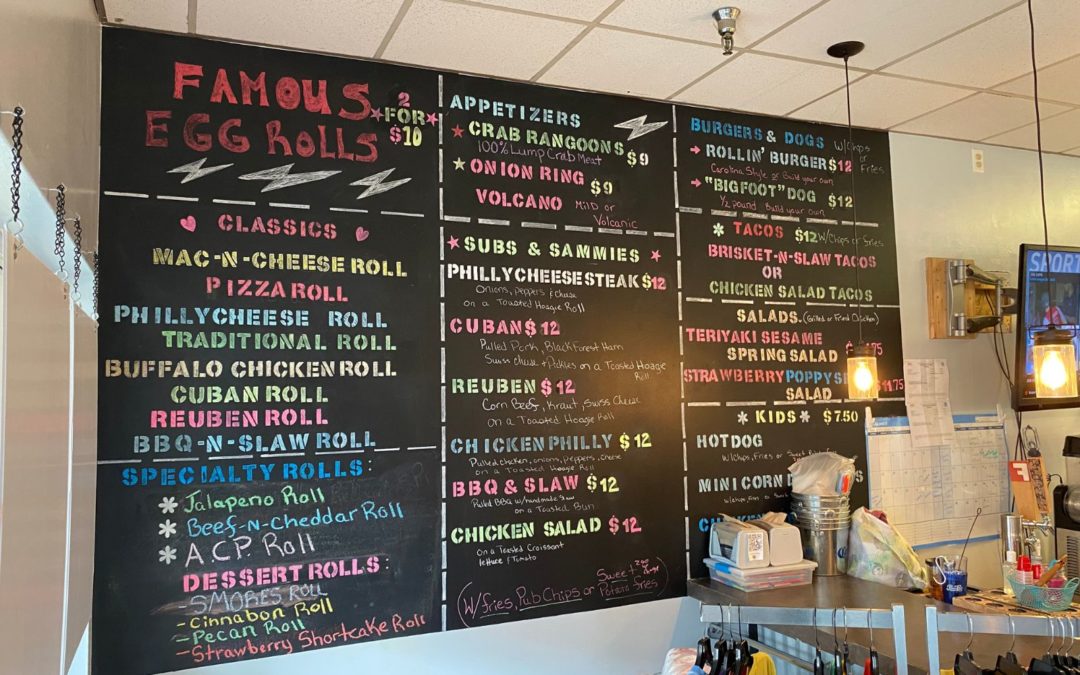 FAMOUS
EGG ROLLS
2
FOR
$10
CLASSICS
MAC-N-CHEESE ROLL
PIZZA ROLL
PHILLYCHEESE ROLL
TRADITIONAL ROLL
BUFFALO CHICKEN ROLL
CUBAN ROLL
REUBEN ROLL
BBQ-N-SLAW ROLL
SPECIALTY ROLLS:
Jalapeno Roll
Beef-N-Cheddar Roll
A.C.P. Roll
DESSERT ROLLS:
- SMORES ROLL
- Cinnabon Roll
- Pecan Roll
- Strawberry Shortcake Roll
APPETIZERS
CRAB RANGOONS $9
100% Lump Crab Meat
ONION RING $9
VOLCANO Mild or
Volcanic
SUBS & SAMMIES
PHILLYCHEESESTEAK $12
Onions, peppers & cheese
on a Toasted Hoagie Roll
CUBAN $12
Pulled Pork, Black Forest Ham
Swiss Cheese & Pickles on a Toasted Hoagie
Roll
REUBEN $12
Corn Beef, Kraut, Swiss Cheese
on a Toasted Hoagie Roll
CHICKEN PHILLY $12
Pulled chicken, onions, peppers, cheese
on a Toasted Hoagie Roll
BBQ & SLAW $12
Pulled BBQ w/handmade slaw
on a Toasted Bun
CHICKEN SALAD $12
on a Toasted Croissant
lettuce / Tomato
(W/ fries, Pub Chips or Sweet Potato fries)
BURGERS & DOGS W/Chips
or Fries
ROLLIN' BURGER $12
Carolina Style or Build your own
"BIGFOOT" DOG $12
1/2 pound Build your own
TACOS $12 W/Chips or fries
BRISKET-N-SLAW TACOS
OR
CHICKEN SALAD TACOS
SALADS (Grilled or Fried Chicken)
TERIYAKI SESAME
SPRING SALAD
STRAWBERRY POPPY
SALAD
KIDS $7.50
HOTDOG
MINI CORN
SPORT